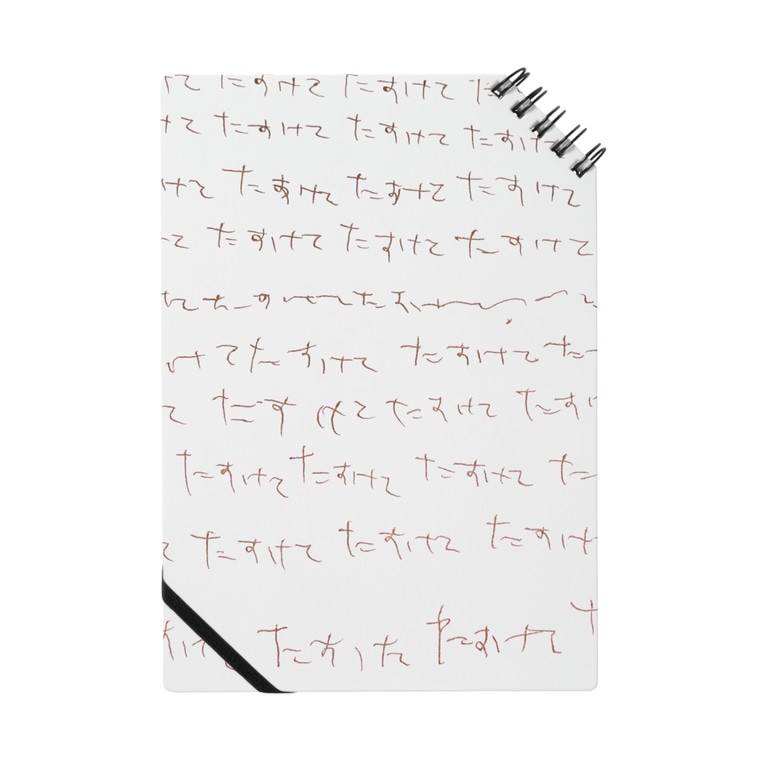 けて たすけて たすけて た
けて たすけて たすけて たすけ
けて たすけて たすけて たすけて
て たすけて たすけて たすけて
たす たす
けて たすけて たすけて た
て たすけて たすけて たすけ
たすけて たすけて たすけて た
て たすけて たすけて たすけ
け たすけて たすけて